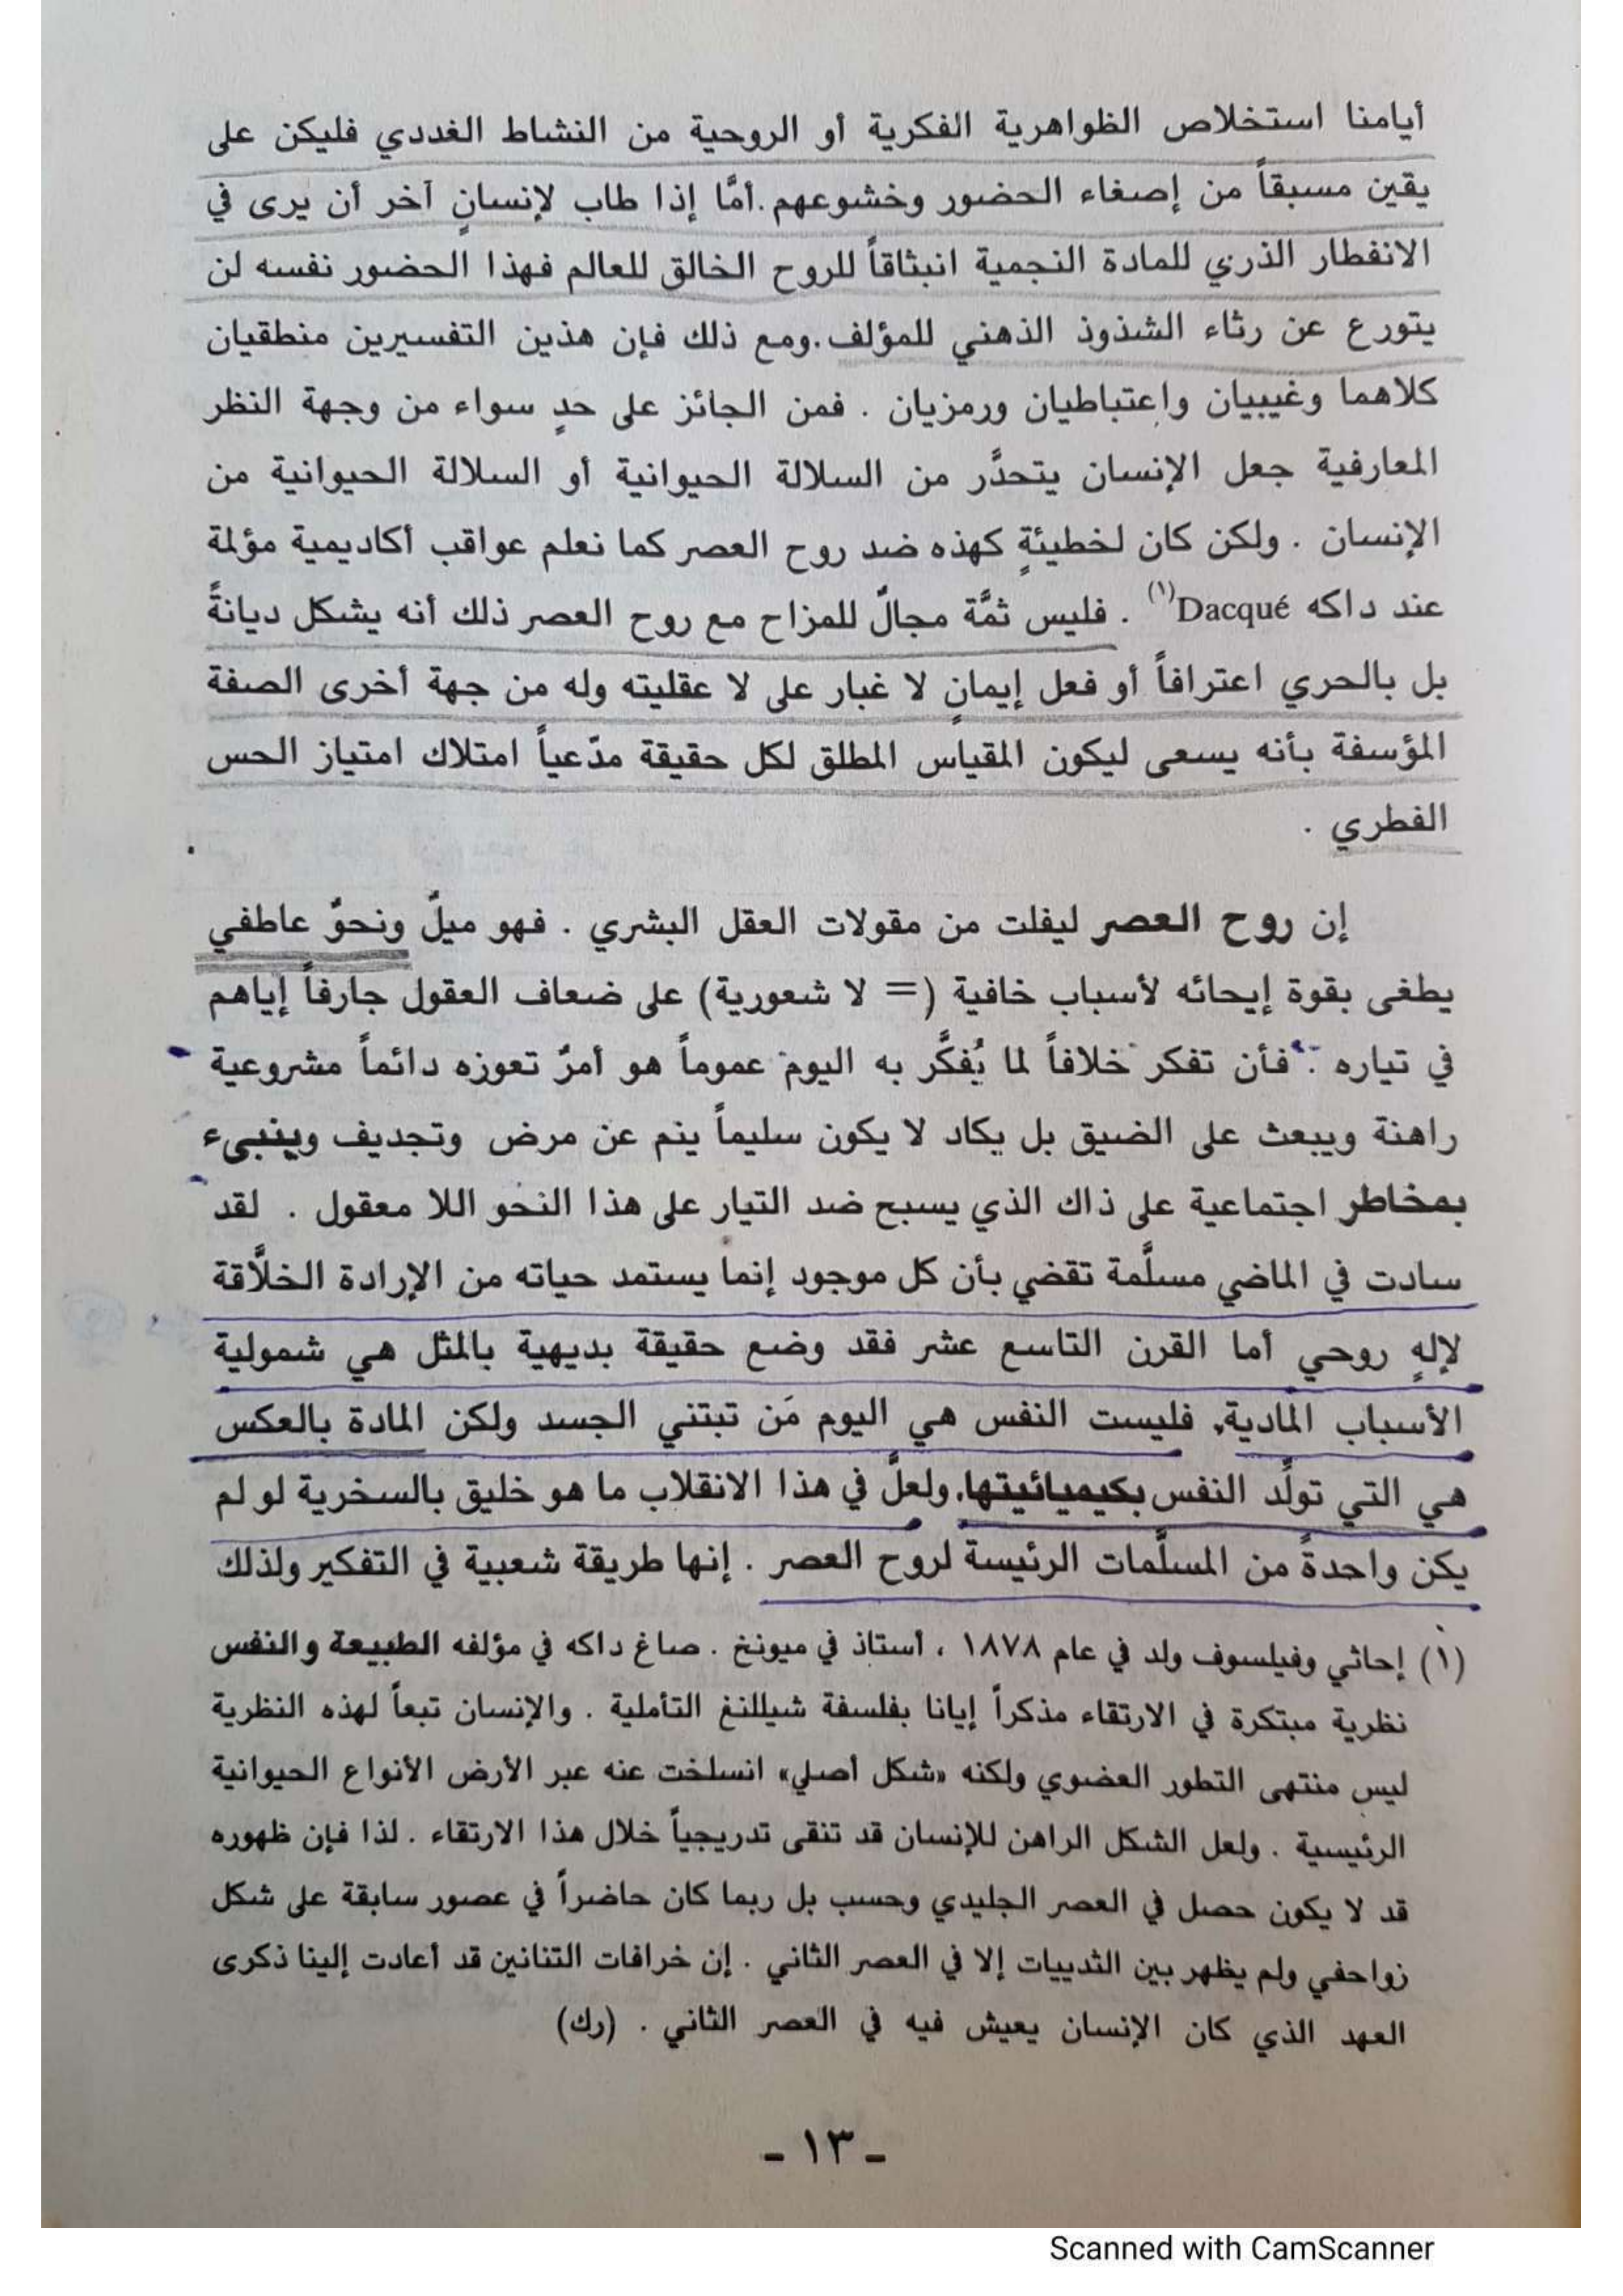 أيامنا استخلاص الظواهرية الفكرية أو الروحية من النشاط الغددي فليكن على
يقين مسبقاً من إصغاء الحضور وخشوعهم. أمَّا إذا طاب لإنسانٍ آخر أن يرى في
الانفطار الذري للمادة النجمية انبثاقاً للروح الخالق للعالم فهذا الحضور نفسه لن
يتورع عن رثاء الشذوذ الذهني للمؤلف. ومع ذلك فإن هذين التفسيرين منطقيان
كلاهما وغيبيان واعتباطيان ورمزيان . فمن الجائز على حدٍ سواء من وجهة النظر
المعارفية جعل الإنسان يتحدَّر من السلالة الحيوانية أو السلالة الحيوانية من
الإنسان . ولكن كان لخطيئةٍ كهذه ضد روح العصر كما نعلم عواقب أكاديمية مؤلمة
عند داكه Dacqué(١) . فليس ثمَّة مجالٌ للمزاح مع روح العصر ذلك أنه يشكل ديانةً
بل بالحري اعترافاً أو فعل إيمانٍ لا غبار على لا عقليته وله من جهة أخرى الصفة
المؤسفة بأنه يسعى ليكون المقياس المطلق لكل حقيقة مدّعياً امتلاك امتياز الحس
الفطري .
إن روح العصر ليفلت من مقولات العقل البشري . فهو ميلٌ ونحوٌ عاطفي
يطغى بقوة إيحائه لأسباب خافية (= لا شعورية) على ضعاف العقول جارفاً إياهم
في تياره . فأن تفكر خلافاً لما يُفكَّر به اليوم عموماً هو أمرٌ تعوزه دائماً مشروعية
راهنة ويبعث على الضيق بل يكاد لا يكون سليماً ينم عن مرض وتجديف وينبىء
بمخاطر اجتماعية على ذاك الذي يسبح ضد التيار على هذا النحو اللا معقول . لقد
سادت في الماضي مسلَّمة تقضي بأن كل موجود إنما يستمد حياته من الإرادة الخلاَّقة
لإلهٍ روحي أما القرن التاسع عشر فقد وضع حقيقة بديهية بالمثل هي شمولية
الأسباب المادية, فليست النفس هي اليوم مَن تبتني الجسد ولكن المادة بالعكس
هي التي تولِّد النفس بكيميائيتها. ولعلَّ في هذا الانقلاب ما هو خليق بالسخرية لو لم
يكن واحدةً من المسلَّمات الرئيسة لروح العصر . إنها طريقة شعبية في التفكير ولذلك
(١) إحاثي وفيلسوف ولد في عام ١٨٧٨ ، أستاذ في ميونخ . صاغ داكه في مؤلفه الطبيعة والنفس
نظرية مبتكرة في الارتقاء مذكراً إيانا بفلسفة شيللنغ التأملية . والإنسان تبعاً لهذه النظرية
ليس منتهى التطور العضوي ولكنه «شكل أصلي» انسلخت عنه عبر الأرض الأنواع الحيوانية
الرئيسية . ولعل الشكل الراهن للإنسان قد تنقى تدريجياً خلال هذا الارتقاء . لذا فإن ظهوره
قد لا يكون حصل في العصر الجليدي وحسب بل ربما كان حاضراً في عصور سابقة على شكل
زواحفي ولم يظهر بين الثدييات إلا في العصر الثاني . إن خرافات التنانين قد أعادت إلينا ذكرى
العهد الذي كان الإنسان يعيش فيه في العصر الثاني . (رك)
- ١٣ -
Scanned with CamScanner